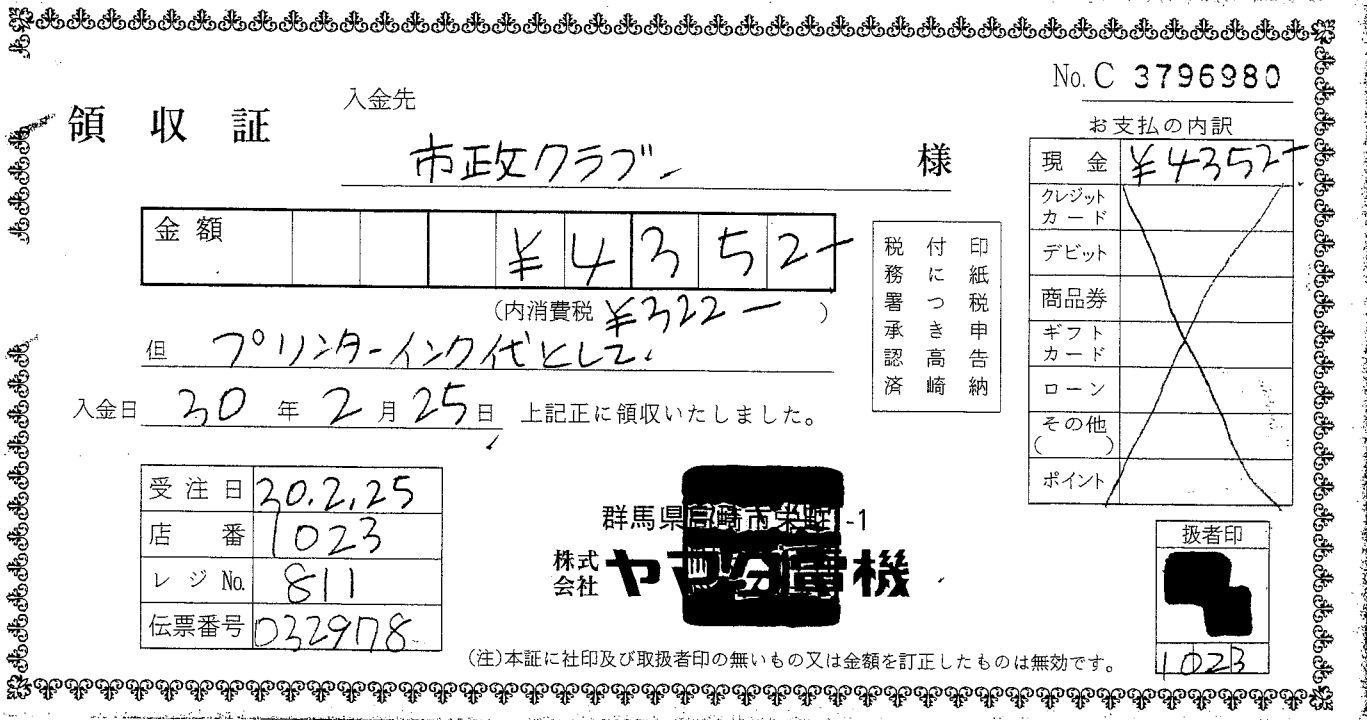 No. C 3796980
領収証
入金先
市政クラブ 様
金額 ¥4352-
(内消費税 ¥322- )
但 プリンターインク代として.
入金日 30年2月25日 上記正に領収いたしました。
印紙税申告納
付につき高崎
税務署承認済
お支払の内訳
現金 ¥4352-
クレジットカード
デビット
商品券
ギフトカード
ローン
その他( )
ポイント
受注日 30.2.25
店番 1023
レジNo. 811
伝票番号 032978
群馬県高崎市栄町1-1
株式会社 ヤマダ電機
扱者印
1023
(注)本証に社印及び取扱者印の無いもの又は金額を訂正したものは無効です。